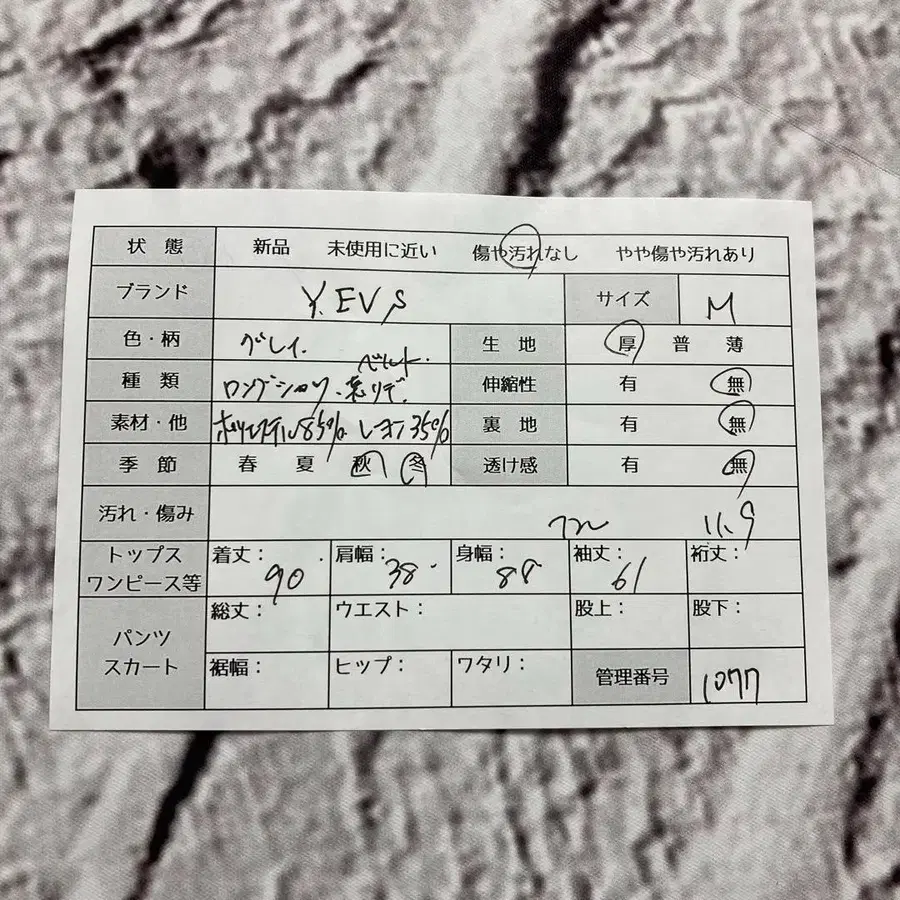 状態 新品 未使用に近い 傷や汚れなし やや傷や汚れあり
ブランド Y.EVS サイズ M
色・柄 グレイ. 生地 厚 普 薄
ベルト.
種類 ロング 伸縮性 有 無
素材・他 ポリエステル85% レーヨン35% 裏地 有 無
季節 春 夏 秋 冬 透け感 有 無
汚れ・傷み 11.9
トップス ワンピース等 着丈: 90 肩幅: 38 身幅: 88 袖丈: 61 裄丈:
パンツ スカート 総丈: ウエスト: 股上: 股下:
裾幅: ヒップ: ワタリ: 管理番号 1077